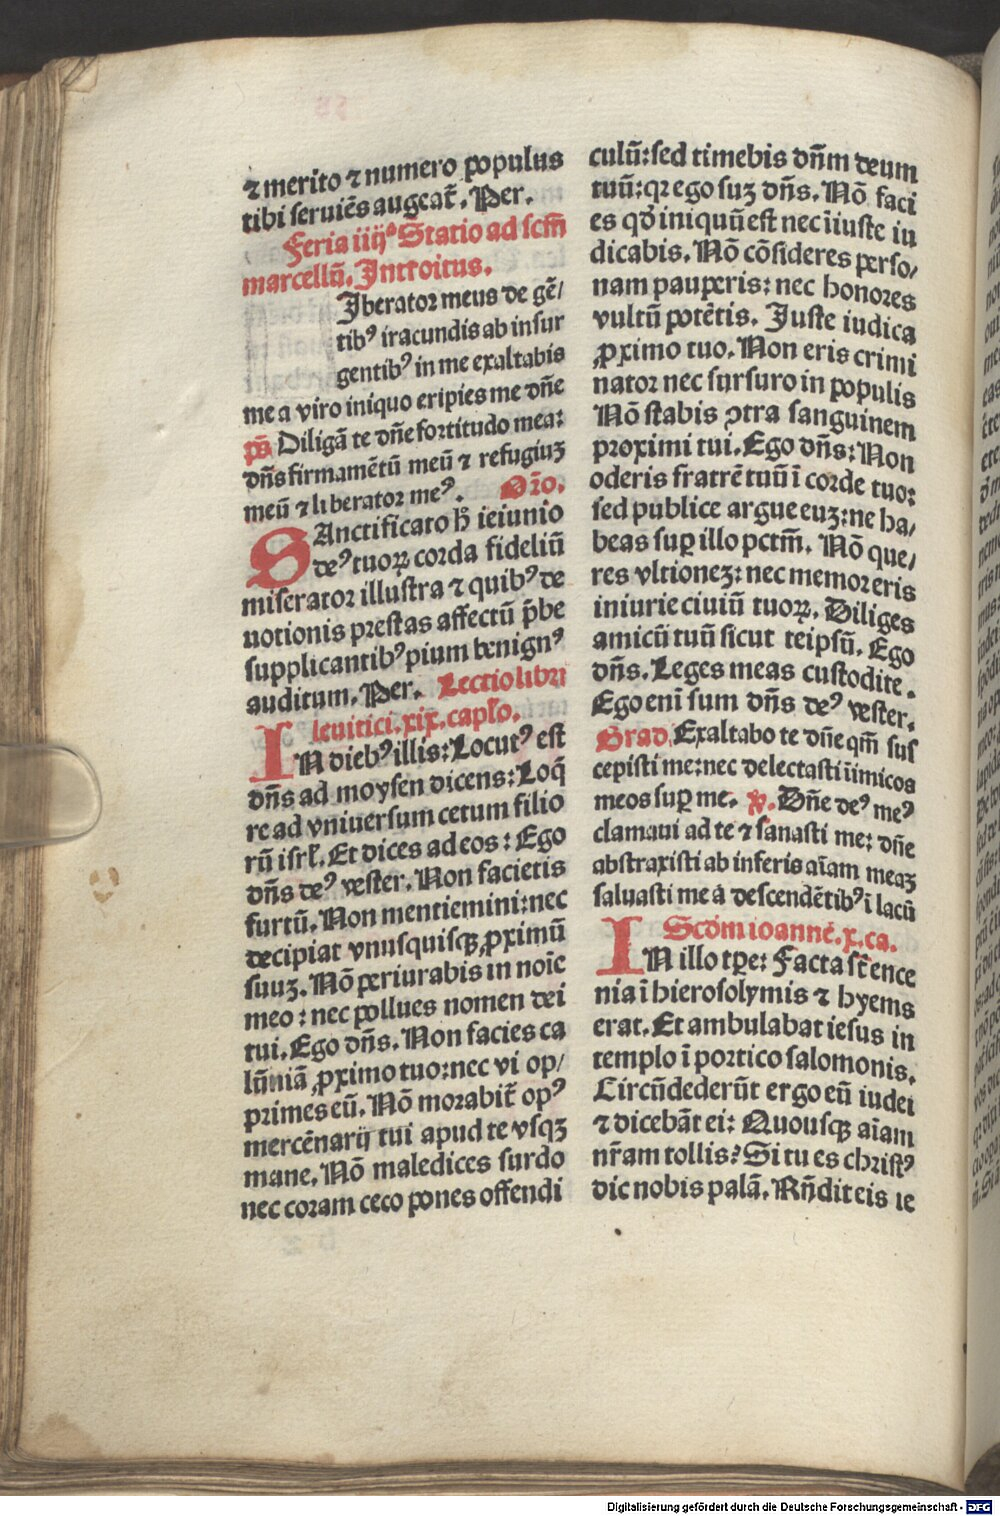 ⁊ merito ⁊ numero populus
tibi seruiẽs augeat̃. Per.
Feria iiij⁰ Statio ad scm̃
marcellũ. Introitus.
Iberator meus de gẽ/
tibꝰ iracundis ab insur
gentibꝰ in me exaltabis
me a viro iniquo eripies me dñe
p̃s Diligã te dñe fortitudo mea:
dñs firmamẽtũ meũ ⁊ refugiuꝫ
meũ ⁊ liberator meꝰ. Or̃o.
SAnctificato h̃ ieiunio
deꝰ tuoꝝ corda fideliũ
miserator illustra ⁊ quibꝰ de
uotionis prestas affectũ p̃be
supplicantibꝰ pium benignꝰ
auditum. Per. Lectio libri
leuitici. xix. capło.
IN diebꝰ illis: Locutꝰ est
dñs ad moysen dicens: Loq̃
re ad vniuersum cetum filio
rũ isrł. Et dices ad eos: Ego
dñs deꝰ vester. Non facietis
furtũ. Non mentiemini: nec
decipiat vnusquisqꝫ ꝓximũ
suuꝫ. Nõ periurabis in noĩe
meo: nec pollues nomen dei
tui. Ego dñs. Non facies ca
lũniã ꝓximo tuo: nec vi op/
primes eũ. Nõ morabit̃ opꝰ
mercẽnarij tui apud te vsqꝫ
mane. Nõ maledices surdo
nec coram ceco pones offendi
culũ: sed timebis dñm deum
tuũ: qꝛ ego suꝫ dñs. Nõ faci
es qđ iniquũ est nec iiuste iu
dicabis. Nõ cõsideres perso/
nam pauperis: nec honores
vultũ potẽtis. Iuste iudica
ꝓximo tuo. Non eris crimi
nator nec sursuro in populis
Nõ stabis ꝯtra sanguinem
proximi tui. Ego dñs: Non
oderis fratrẽ tuũ ĩ corde tuo:
sed publice argue euꝫ: ne ha/
beas suꝑ illo pctm̃. Nõ que/
res vltioneꝫ: nec memor eris
iniurie ciuiũ tuoꝝ. Diliges
amicũ tuũ sicut teipsũ. Ego
dñs. Leges meas custodite.
Ego enĩ sum dñs deꝰ vester.
Grad. Exaltabo te dñe qm̃ sus
cepisti me: nec delectasti iĩmicos
meos suꝑ me. ℣. Dñe deꝰ meꝰ
clamaui ad te ⁊ sanasti me: dñe
abstraxisti ab inferis aĩam meaꝫ
saluasti me a descendẽtibꝰ ĩ lacũ
Scđm ioannẽ. x. ca.
IN illo tꝑe: Facta sũt ence
nia ĩ hierosolymis ⁊ hyems
erat. Et ambulabat iesus in
templo ĩ portico salomonis.
Circũdederũt ergo eũ iudei
⁊ dicebãt ei: Quousqꝫ aĩam
nr̃am tollis? Si tu es christꝰ
dic nobis palã. Rñdit eis ie
Digitalisierung gefördert durch die Deutsche Forschungsgemeinschaft - DFG